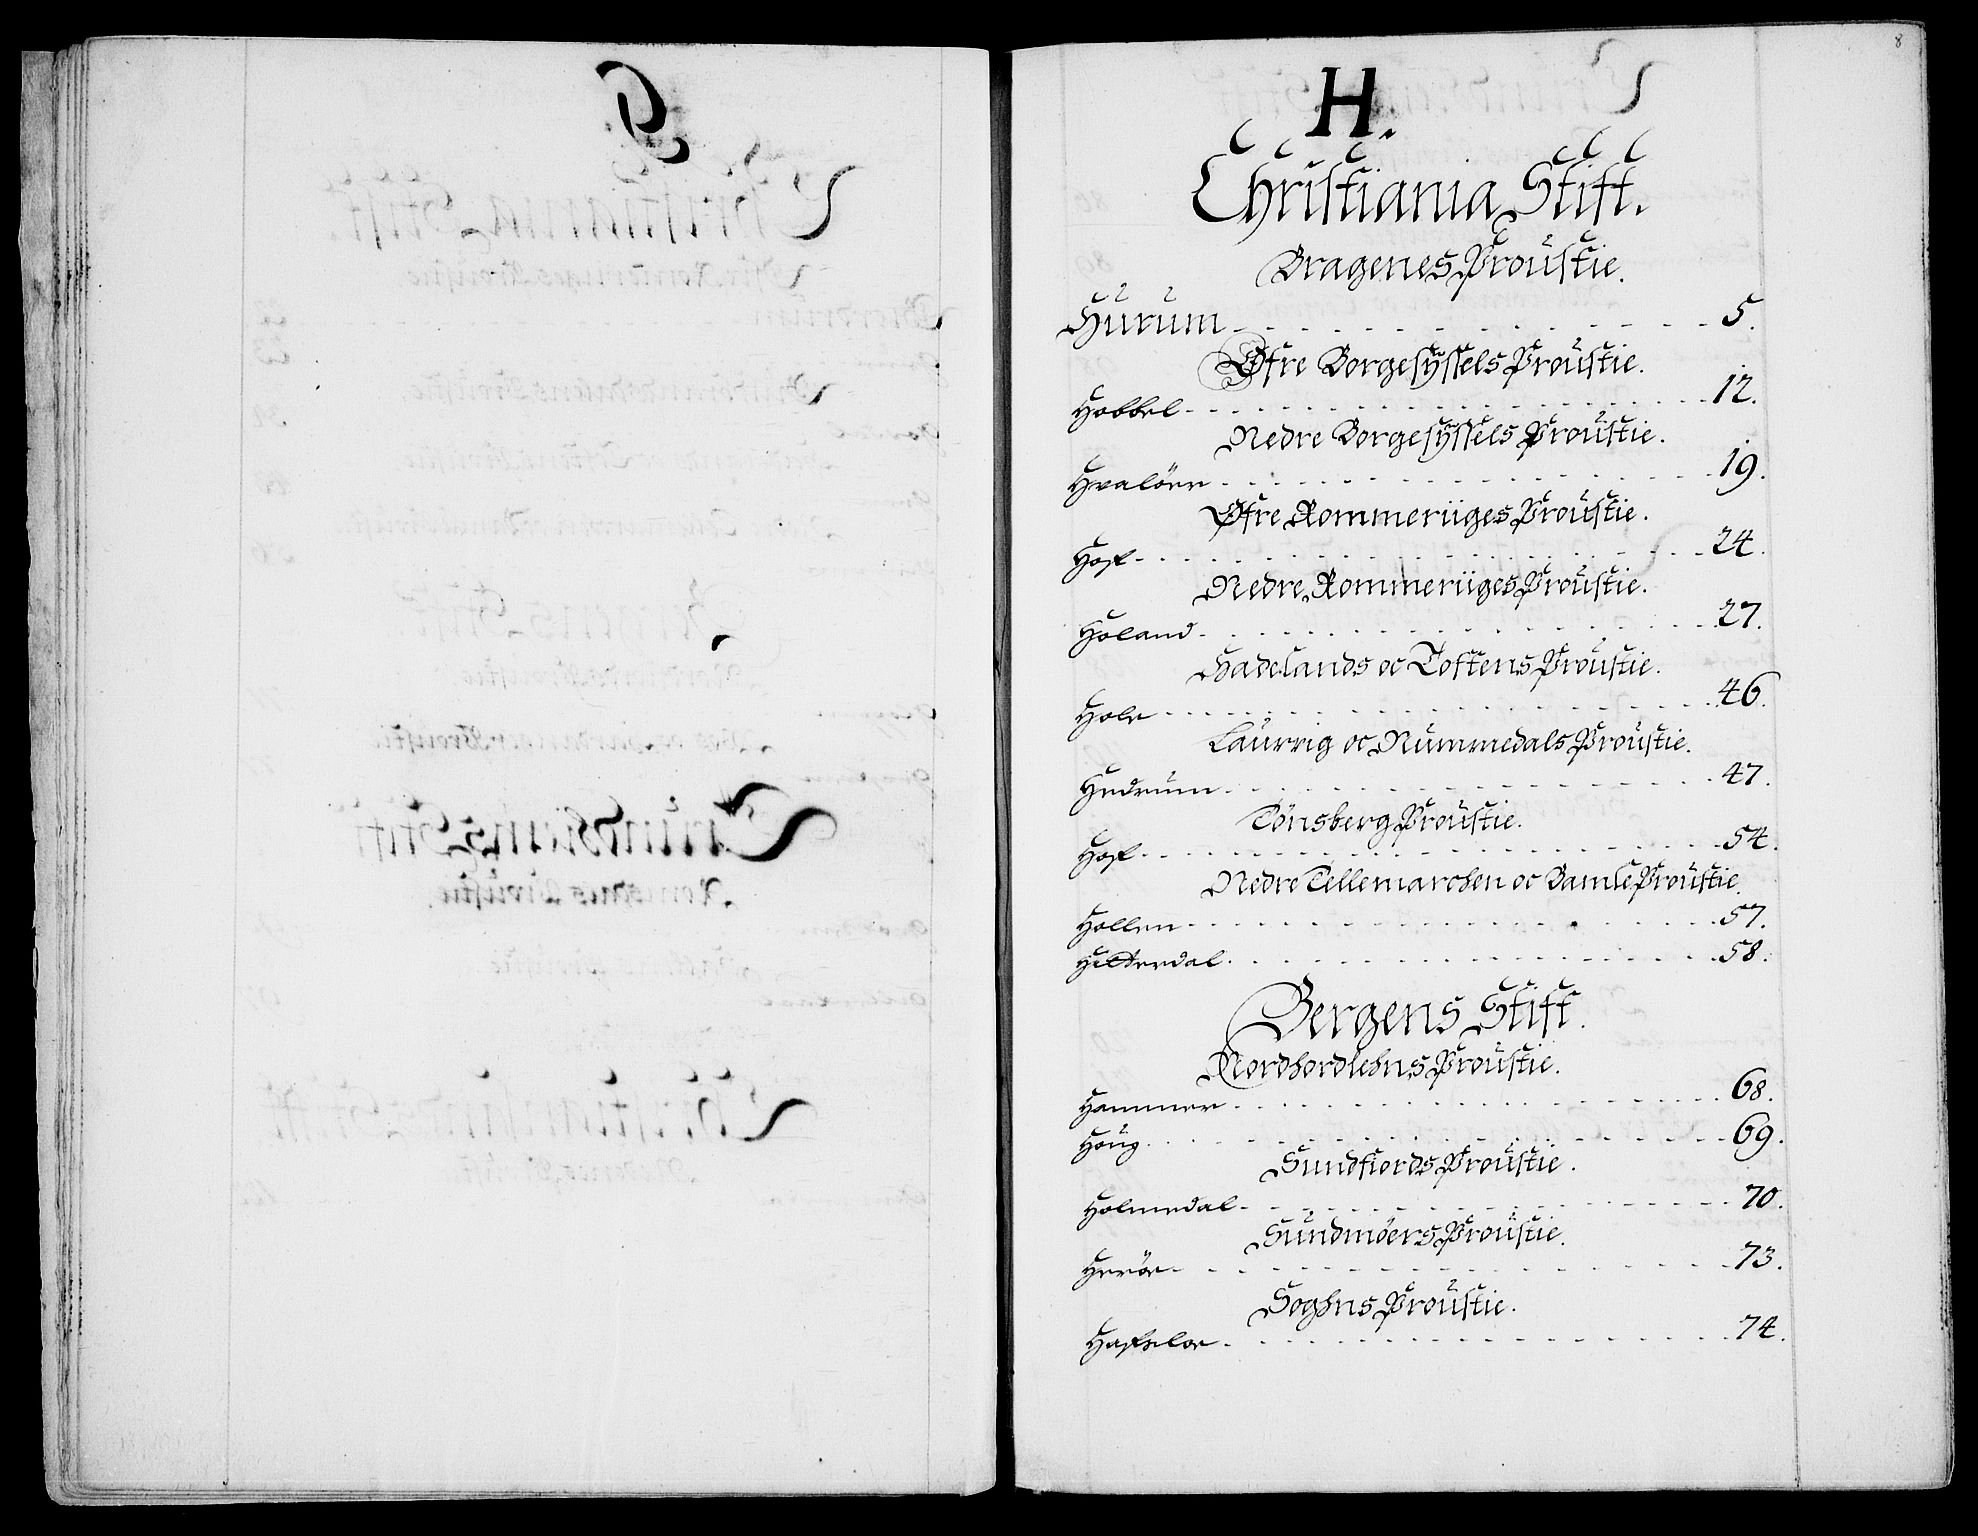 G
8
H.
Christiania Stift.
Bragenes Proustie.
Hurum 5.
Øfre Borgesÿssels Proustie.
Hobbel 12.
Nedre Borgesÿssels Proustie.
Hvalöer 19.
Øfre Rommeriiges Proustie.
Hof 24.
Nedre Rommeriiges Proustie.
Höland 27.
Hadelands oc Toftens Proustie.
Hole 46.
Laurvig oc Nummedals Proustie.
Hedrum 47.
Tönsberg Proustie.
Hof 54.
Nedre Tellemarchen oc Bamle Proustie.
Hollen 57.
Hitterdal 58.
Bergens Stift.
Nordhordlehns Proustie.
Hammer 68.
Houg 69.
Sundfiords Proustie.
Holmedal 70.
Sundmöers Proustie.
Heröe 73.
Soghns Proustie.
Hafsloe 74.